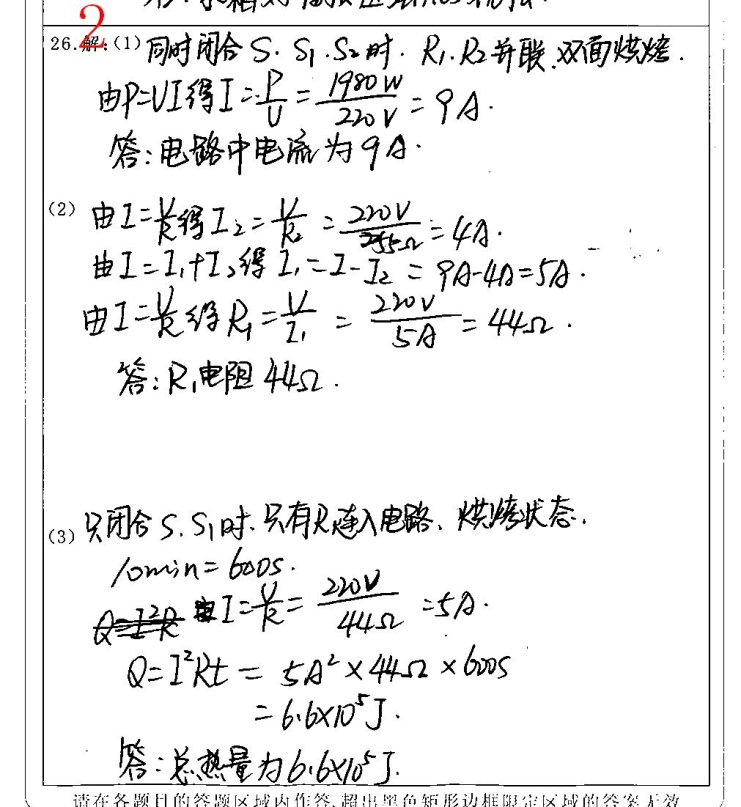 2
26.解:(1)同时闭合S.S₁.S₂时.R₁.R₂并联.双面烘烤.
由P=UI得I=P/U=1980W/220V=9A.
答:电路中电流为9A.
(2)由I=U/R得I₂=U/R₂=220V/55Ω=4A.
由I=I₁+I₂得I₁=I-I₂=9A-4A=5A.
由I=U/R得R₁=U/I₁=220V/5A=44Ω.
答:R₁电阻44Ω.
(3)只闭合S.S₁时.只有R₁连入电路、烘烤状态.
10min=600s.
Q=I²R 由I=U/R=220V/44Ω=5A.
Q=I²Rt=5A²×44Ω×600s
=6.6×10⁵J.
答:总热量为6.6×10⁵J.
请在各题目的答题区域内作答,超出黑色矩形边框限定区域的答案无效